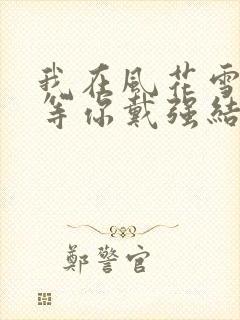 我在風花雪
等你戴强結
鄭警官